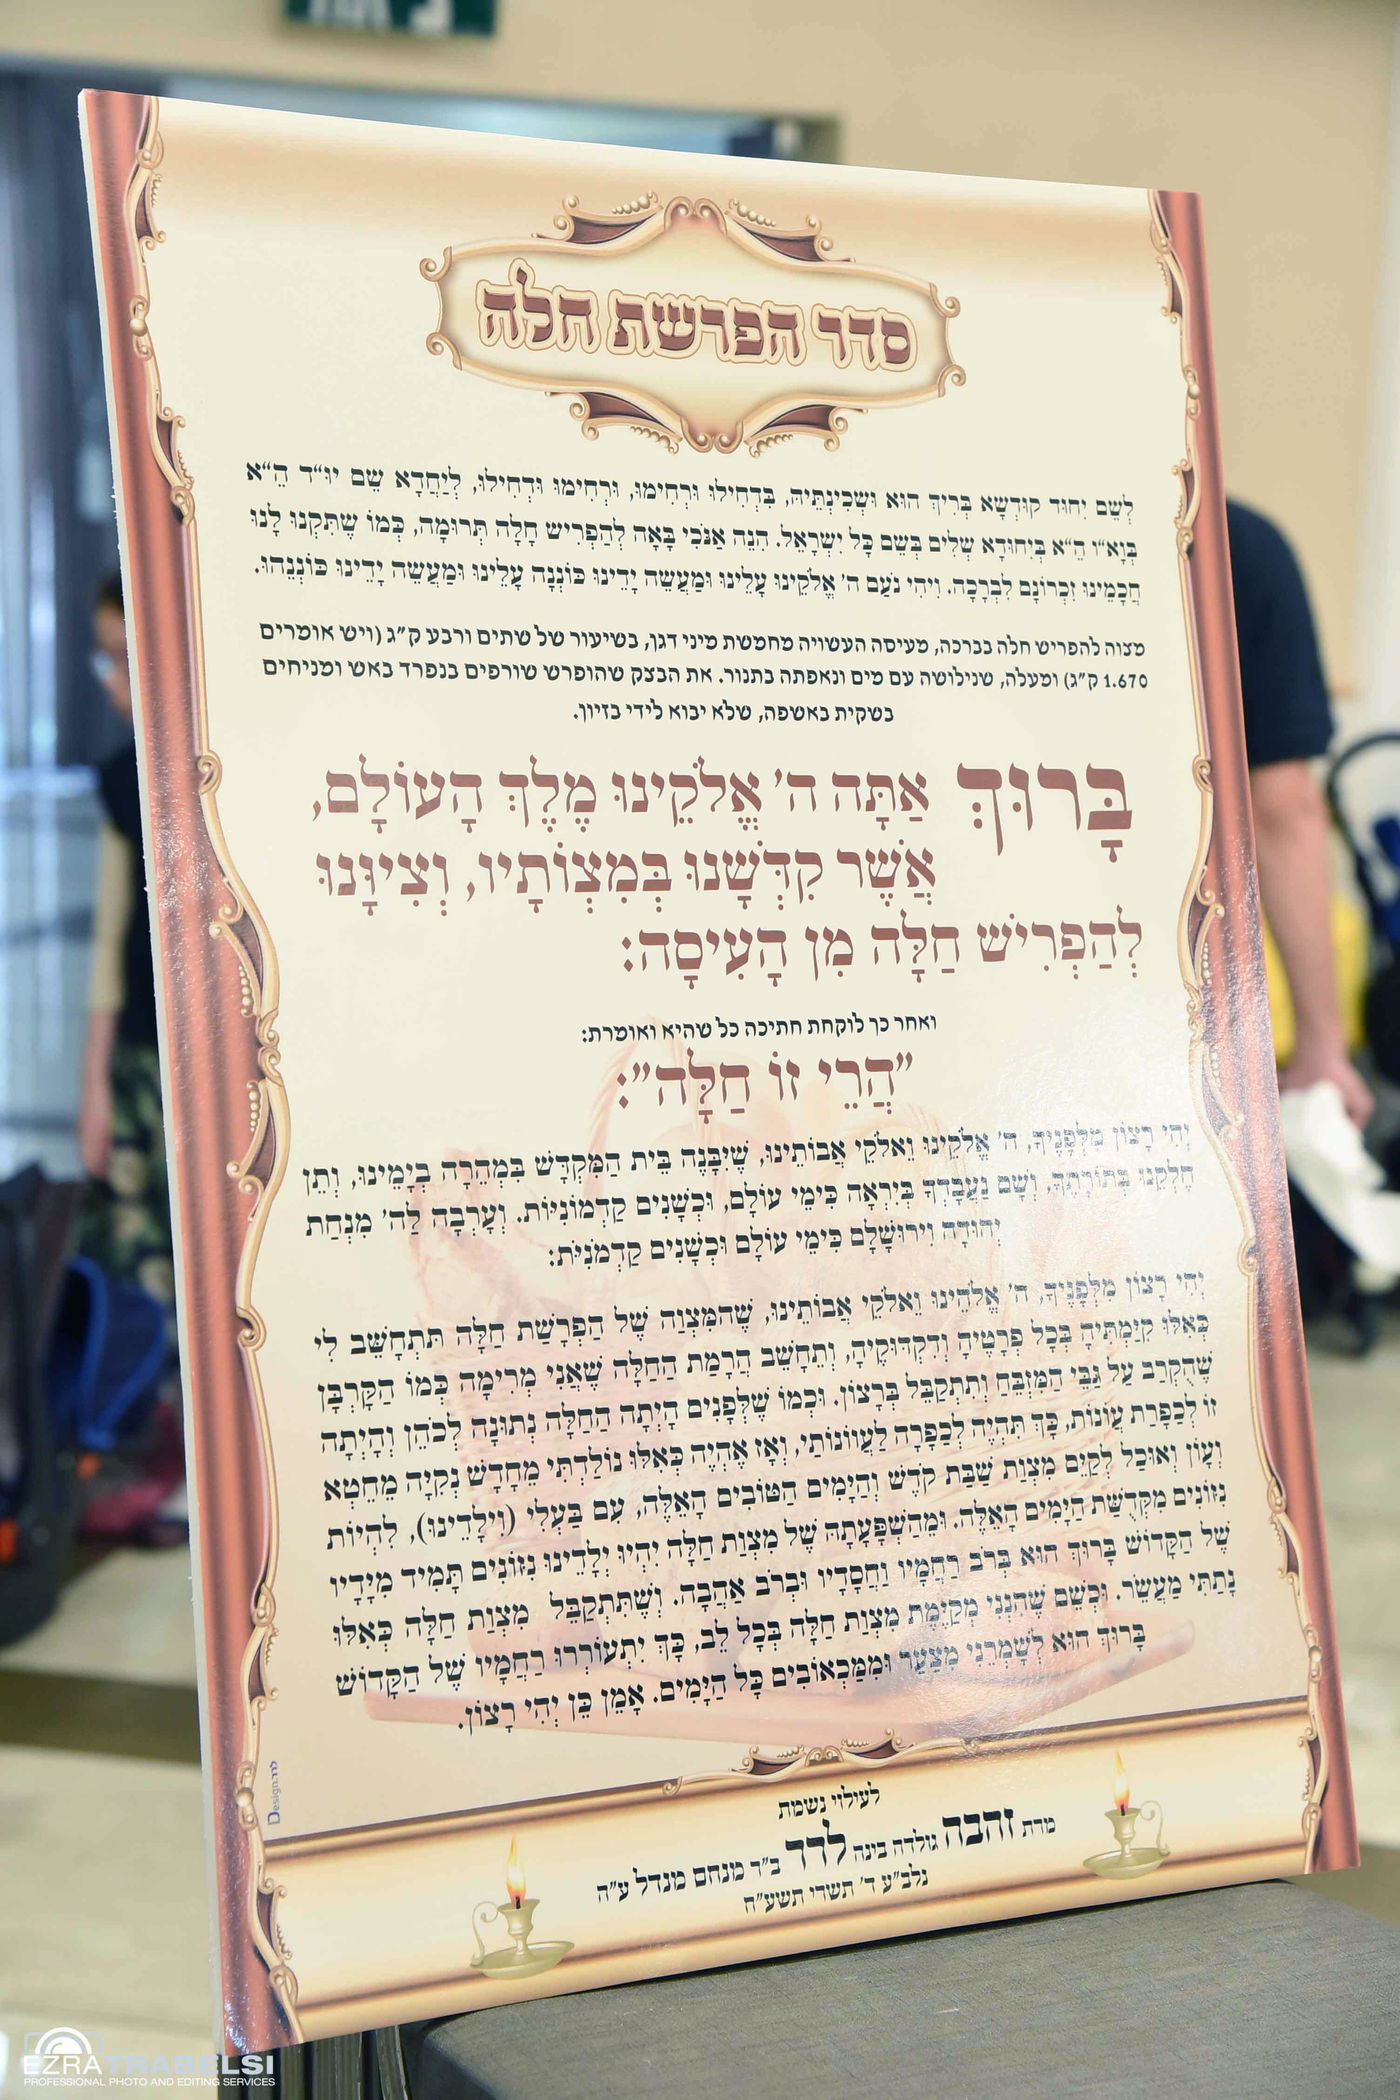 סדר הפרשת חלה
לְשֵׁם יִחוּד קוּדְשָׁא בְּרִיךְ הוּא וּשְׁכִינְתֵּיהּ, בִּדְחִילוּ וּרְחִימוּ, וּרְחִימוּ וּדְחִילוּ, לְיַחֲדָא שֵׁם יוּ"ד הֵ"א
בְּוָא"ו הֵ"א בְּיִחוּדָא שְׁלִים בְּשֵׁם כָּל יִשְׂרָאֵל. הִנֵּה אָנֹכִי בָּאָה לְהַפְרִישׁ חַלָּה תְּרוּמָה, כְּמוֹ שֶׁתִּקְּנוּ לָנוּ
חֲכָמֵינוּ זִכְרוֹנָם לִבְרָכָה. וִיהִי נֹעַם ה' אֱלֹקֵינוּ עָלֵינוּ וּמַעֲשֵׂה יָדֵינוּ כּוֹנְנָה עָלֵינוּ וּמַעֲשֵׂה יָדֵינוּ כּוֹנְנֵהוּ.
מצוה להפריש חלה בברכה, מעיסה העשויה מחמשת מיני דגן, בשיעור של שתים ורבע ק"ג (ויש אומרים
1.670 ק"ג) ומעלה, שנילושה עם מים ונאפתה בתנור. את הבצק שהופרש שורפים בנפרד באש ומניחים
בשקית באשפה, שלא יבוא לידי בזיון.
בָּרוּךְ אַתָּה ה' אֱלֹקֵינוּ מֶלֶךְ הָעוֹלָם,
אֲשֶׁר קִדְּשָׁנוּ בְּמִצְוֹתָיו, וְצִיוָּנוּ
לְהַפְרִישׁ חַלָּה מִן הָעִיסָה:
ואחר כך לוקחת חתיכה כל שהיא ואומרת:
"הֲרֵי זוֹ חַלָּה":
יְהִי רָצוֹן מִלְּפָנֶיךָ, ה' אֱלֹקֵינוּ וֵאלֹקֵי אֲבוֹתֵינוּ, שֶׁיִּבָּנֶה בֵּית הַמִּקְדָּשׁ בִּמְהֵרָה בְיָמֵינוּ, וְתֵן
חֶלְקֵנוּ בְּתוֹרָתֶךָ, וְשָׁם נַעֲבָדְךָ בְּיִרְאָה כִּימֵי עוֹלָם, וּכְשָׁנִים קַדְמוֹנִיּוֹת. וְעָרְבָה לַה' מִנְחַת
יְהוּדָה וִירוּשָׁלָם כִּימֵי עוֹלָם וּכְשָׁנִים קַדְמֹנִיֹּת:
יְהִי רָצוֹן מִלְּפָנֶיךָ, ה' אֱלֹהֵינוּ וֵאלֹקֵי אֲבוֹתֵינוּ, שֶׁהַמִּצְוָה שֶׁל הַפְרָשַׁת חַלָּה תִּתְחַשֵּׁב לִי
כְּאִלּוּ קִיַּמְתִּיהָ בְּכָל פְּרָטֶיהָ וְדִקְדּוּקֶיהָ, וְתֵחָשֵׁב הֲרָמַת הַחַלָּה שֶׁאֲנִי מְרִימָה כְּמוֹ הַקָּרְבָּן
שֶׁהֻקְרַב עַל גַּבֵּי הַמִּזְבֵּחַ וְתִתְקַבֵּל בְּרָצוֹן. וּכְמוֹ שֶׁלְּפָנִים הָיְתָה הַחַלָּה נְתוּנָה לַכֹּהֵן וְהָיְתָה
זוֹ לְכַפָּרַת עֲוֹנוֹת, כָּךְ תִּהְיֶה לְכַפָּרָה לַעֲווֹנוֹתַי, וְאָז אֶהְיֶה כְּאִלּוּ נוֹלַדְתִּי מֵחָדָשׁ נְקִיָּה מֵחֵטְא
וְעָוֹן וְאוּכַל לְקַיֵּם מִצְוַת שַׁבַּת קֹדֶשׁ וְהַיָּמִים הַטּוֹבִים הָאֵלֶּה, עִם בַּעְלִי (וִילָדֵינוּ), לִהְיוֹת
נִזּוֹנִים מִקְּדֻשַּׁת הַיָּמִים הָאֵלֶּה. וּמֵהַשְׁפָּעָתָהּ שֶׁל מִצְוַת חַלָּה יִהְיוּ יְלָדֵינוּ נִזּוֹנִים תָּמִיד מִיָּדָיו
שֶׁל הַקָּדוֹשׁ בָּרוּךְ הוּא בְּרֹב רַחֲמָיו וַחֲסָדָיו וּבְרֹב אַהֲבָה. וְשֶׁתִּתְקַבֵּל מִצְוַת חַלָּה כְּאִלּוּ
נָתַתִּי מַעֲשֵׂר. וּכְשֵׁם שֶׁהִנְנִי מְקַיֶּמֶת מִצְוַת חַלָּה בְּכָל לֵב, כָּךְ יִתְעוֹרְרוּ רַחֲמָיו שֶׁל הַקָּדוֹשׁ
בָּרוּךְ הוּא לְשָׁמְרֵנִי מִצַּעַר וּמִמַּכְאוֹבִים כָּל הַיָּמִים. אָמֵן כֵּן יְהִי רָצוֹן.
Design.לדר
לעילוי נשמת
מרת זהבה גולדה בינה לדר ב"ר מנחם מנדל ע"ה
נלב"ע ד' תשרי תשע"ח
EZRA TRABELSI
PROFESSIONAL PHOTO AND EDITING SERVICES